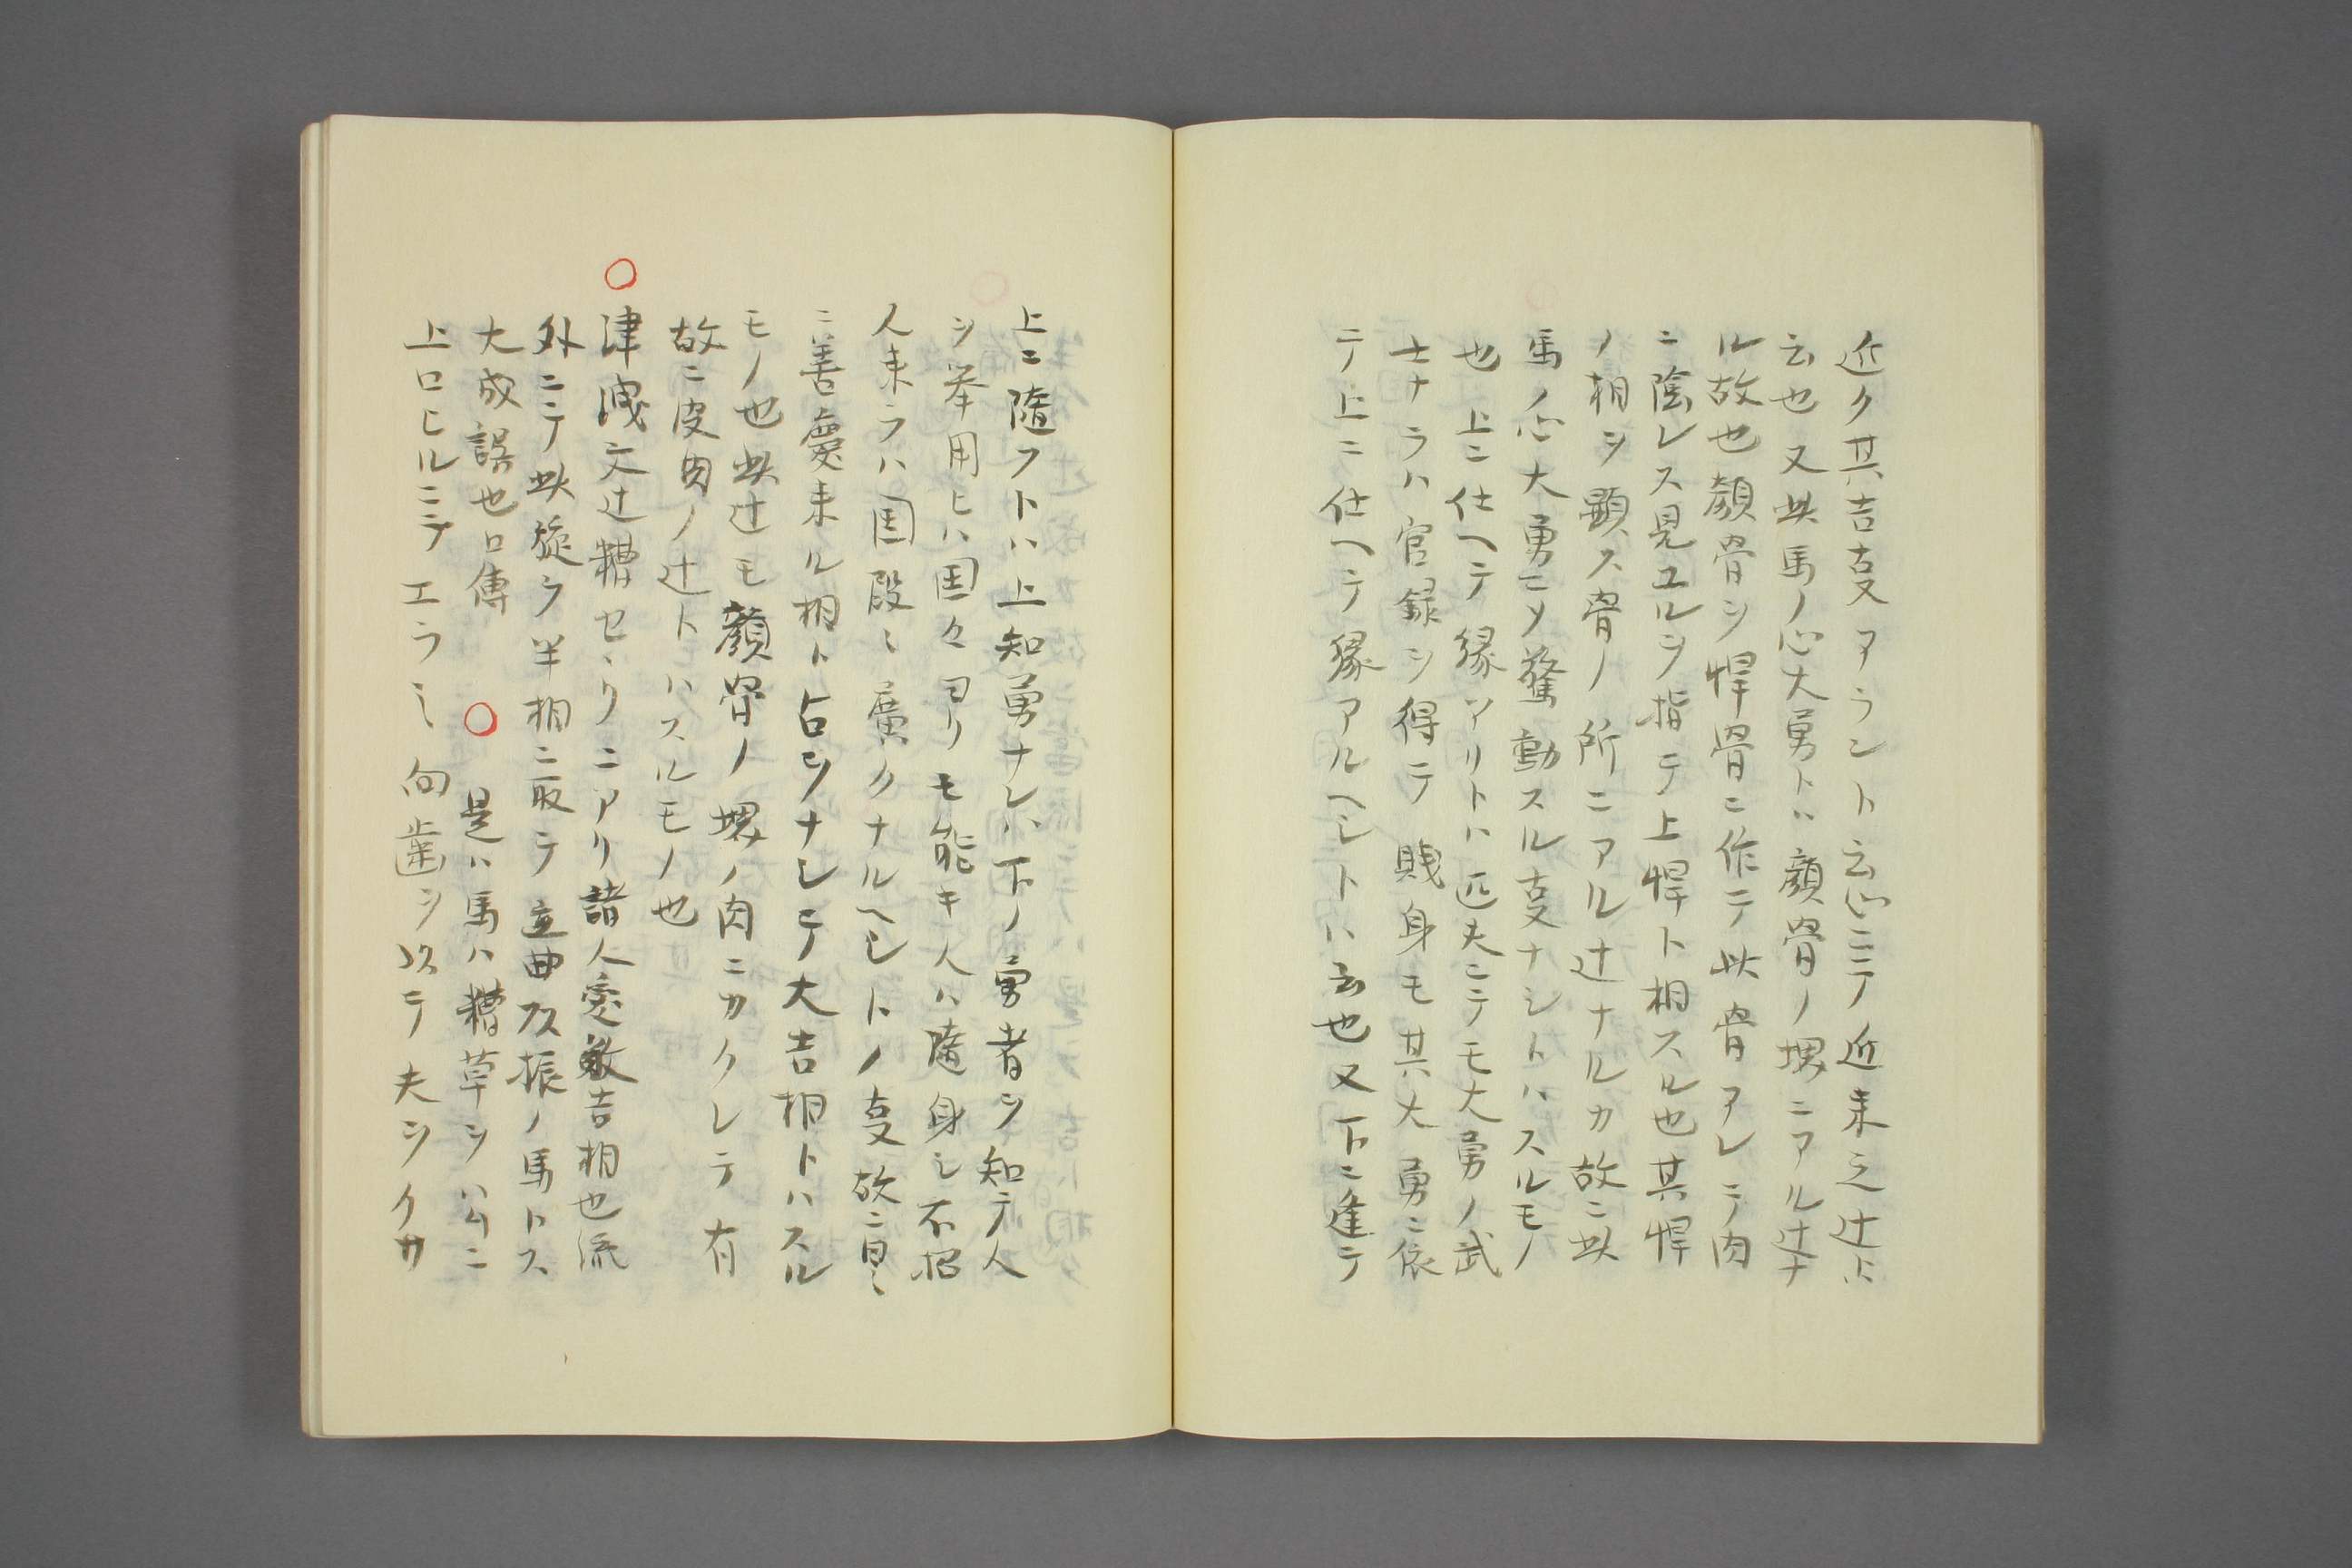 近ク其吉㕝アラント云心ニテ近来之辻ト
云也又此馬ノ心大勇トハ顔骨ノ堺ニアル辻ナ
ル故也顔骨ヲ悍骨ニ作テ此骨アレテ肉
ニ陰レス見ユルヲ指テ上悍ト相スル也其悍
ノ相ヲ顕ス骨ノ所ニアル辻ナルカ故ニ此
馬ノ心大勇ニメ驚動スル㕝ナシトハスルモノ
也上ニ仕ヘテ縁アリトハ匹夫ニテモ大勇ノ武
士ナラハ官録ヲ得テ賎身モ其大勇ニ依
テ上ニ仕ヘテ縁アルヘシトハ云也又下ニ逢テ
上ニ隨フトハ上知勇ナレハ下ノ勇者ヲ知テ人
ヲ挙用ヒハ国々ヨリモ能キ人ハ隨身シ不招
人来ラハ国段ミ廣クナルヘシトノ㕝故ニ日ミ
ニ善慶来ル相ト占ヲナシテ大吉相トハスル
モノ也此辻モ顔骨ノ堺ノ肉ニカクレテ有
故ニ皮肉ノ辻トハスルモノ也
○津洩文辻糟セヽクニアリ諸人愛敬吉相也流
外ニテ此旋ヲ半相ニ取テ歪曲及振ノ馬トス
大成誤也口傳 ○是ハ馬ハ糟草ヲハムニ
上ロヒルニテエラミ向歯ヲ以テ夫ヲクサ